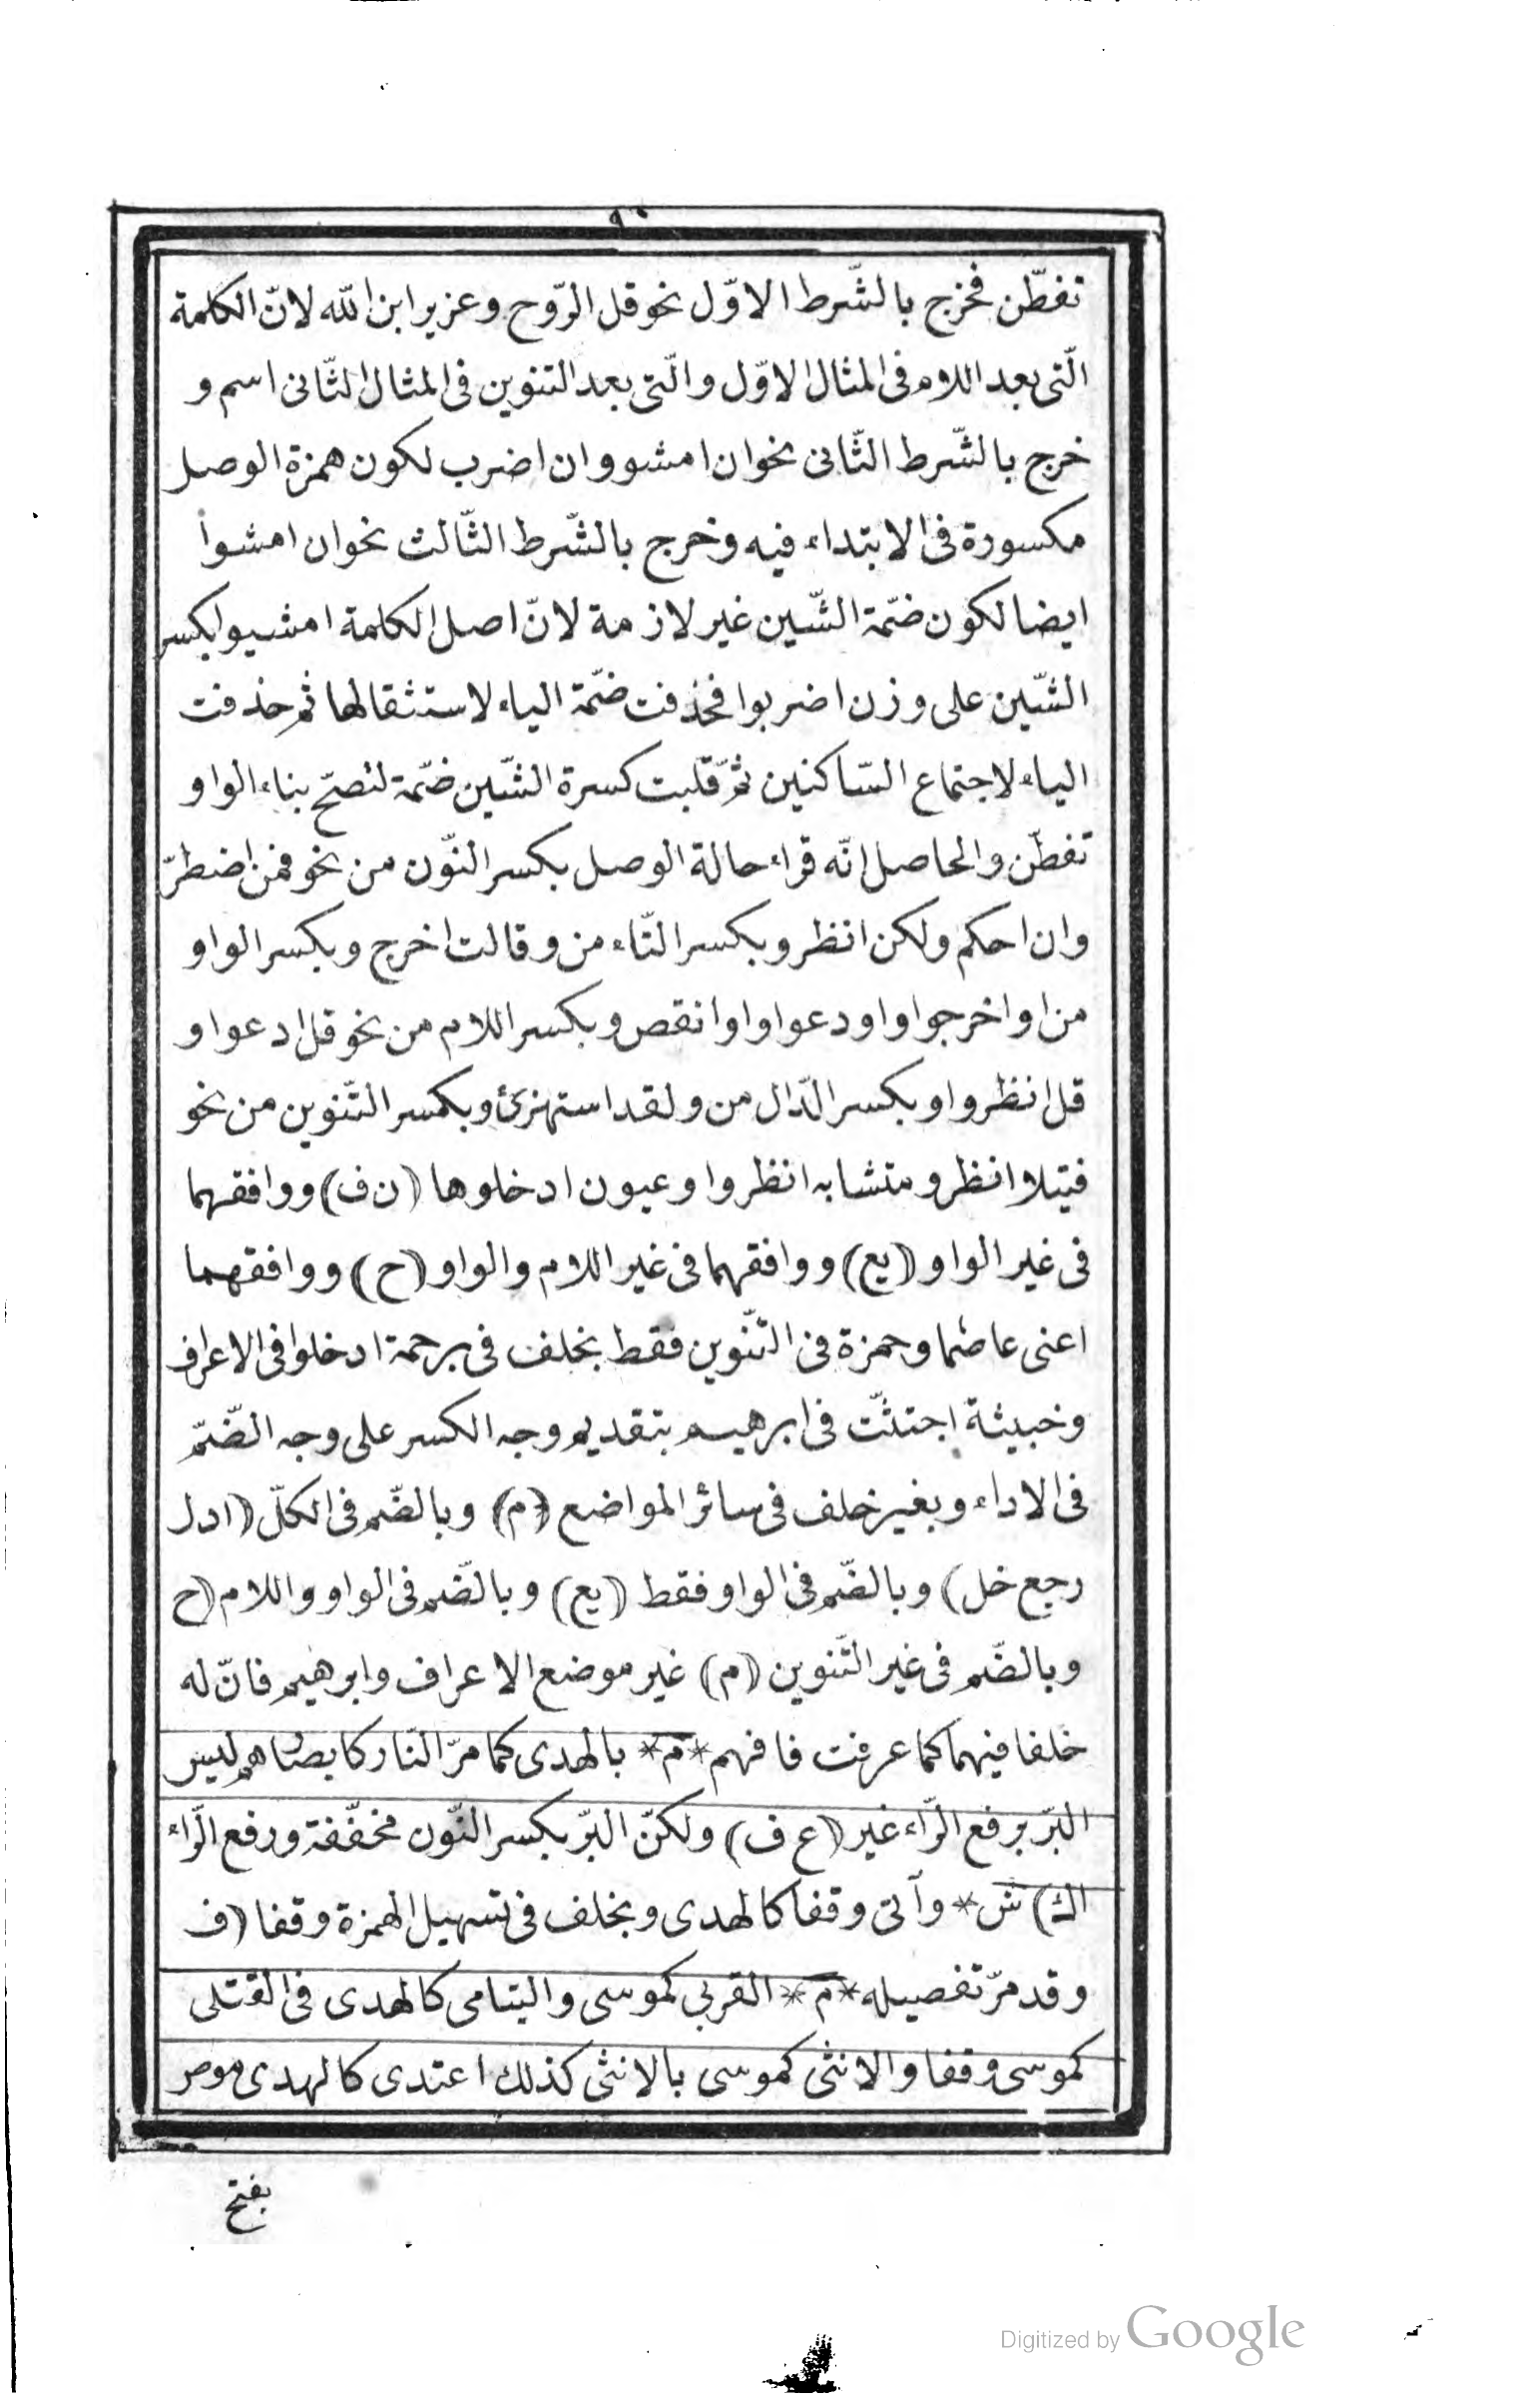 ٩٠
تفطّن فخرج بالشّرط الاوّل نحو قل الرّوح وعزير ابن الله لانّ الكلمة
الّتى بعد اللام فى المثال الاوّل والّتى بعد التنوين فى المثال الثّانى اسم و
خرج بالشّرط الثّانى نحو ان امشوو ان اضرب لكون همزة الوصل
مكسورة فى الابتداء فيه وخرج بالشّرط الثّالث نحو ان امشوا
ايضا لكون ضمّة الشّين غير لازمة لانّ اصل الكلمة امشيوا بكسر
الشّين على وزن اضربوا فحذفت ضمّة الياء لاستثقالها ثم حذفت
الياء لاجتماع السّاكنين ثمّ قلبت كسرة الشّين ضمّة لتصحّ بناء الواو
تفطّن والحاصل انّه قراء حالة الوصل بكسر النّون من نحو فمن اضطرّ
وان احكم ولكن انظر وبكسر التّاء من وقالت اخرج وبكسر الواو
من او اخرجوا او ادعوا او انقص وبكسر اللام من نحو قل ادعوا و
قل انظروا وبكسر الدّال من ولقد استهزئ وبكسر التّنوين من نحو
فتيلا انظر ومتشابه انظروا وعيون ادخلوها (ن ف) ووافقهما
فى غير الواو (يع) ووافقهما فى غير اللام والواو (ح) ووافقهما
اعنى عاصما وحمزة فى التّنوين فقط بخلف فى برحمة ادخلوا فى الاعراف
وخبيثة اجتثّت فى ابرهيم بتقديم وجه الكسر على وجه الضّمّ
فى الاداء وبغير خلف فى سائر المواضع (م) وبالضّم فى الكلّ (ا د ل
ر جع خل) وبالضّم فى الواو فقط (يع) وبالضّم فى الواو واللام (ح
وبالضّم فى غير التّنوين (م) غير موضع الاعراف وابرهيم فانّ له
خلفا فيهما كما عرفت فافهم *م* بالهدى كما مرّ النار كابصارهم ليس
البرّ برفع الرّاء غير (ع ف) ولكنّ البرّ بكسر النّون مخفّفة ورفع الرّاء
اك) ش* وآتى وقفا كالهدى وبخلف فى تسهيل الهمزة وقفا (ف
وقد مرّ تفصيله *م* القربى كموسى واليتامى كالهدى فى القتلى
كموسى وقفا والانثى كموسى بالانثى كذلك اعتدى كالهدى موص
بفتح
Digitized by Google